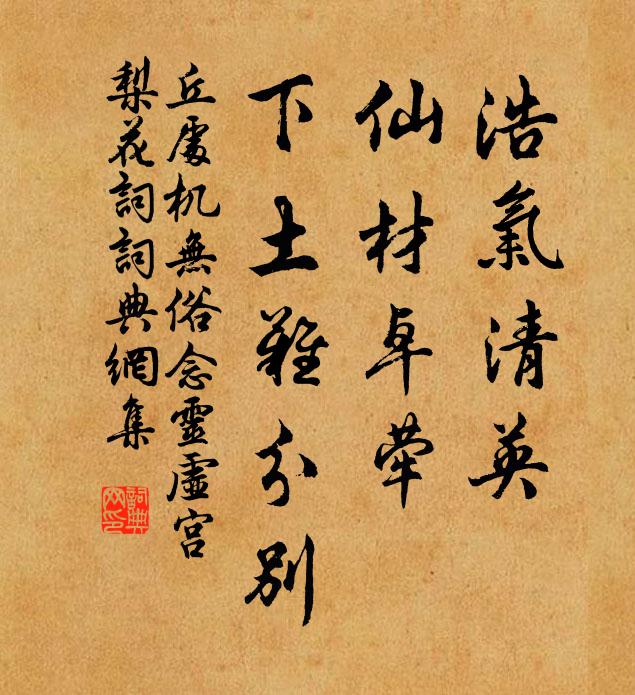 浩氣清英
仙材卓犖
下土難分別
丘處机無俗念靈虛宮
梨花詞詞典網集
詞典網印